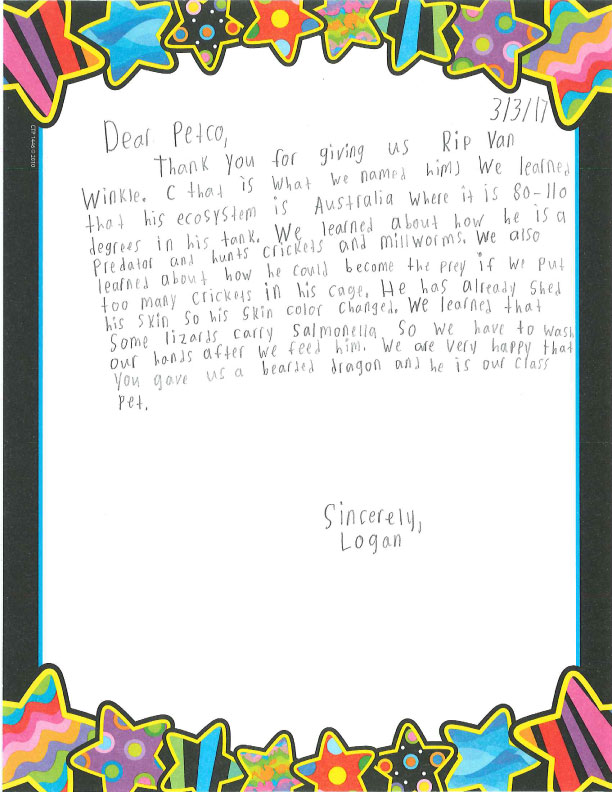 3/3/17
Dear Petco,
Thank you for giving us Rip Van
Winkle. ( that is what we named him) We learned
that his ecosystem is Australia where it is 80-110
degrees in his tank. We learned about how he is a
predator and hunts crickets and millworms. We also
learned about how he could become the prey if we put
too many crickets in his cage. He has already shed
his skin so his skin color changed. We learned that
some lizards carry salmonella so we have to wash
our hands after we feed him. We are very happy that
you gave us a bearded dragon and he is our class
pet.
Sincerely,
Logan
CTP 1446 © 2010